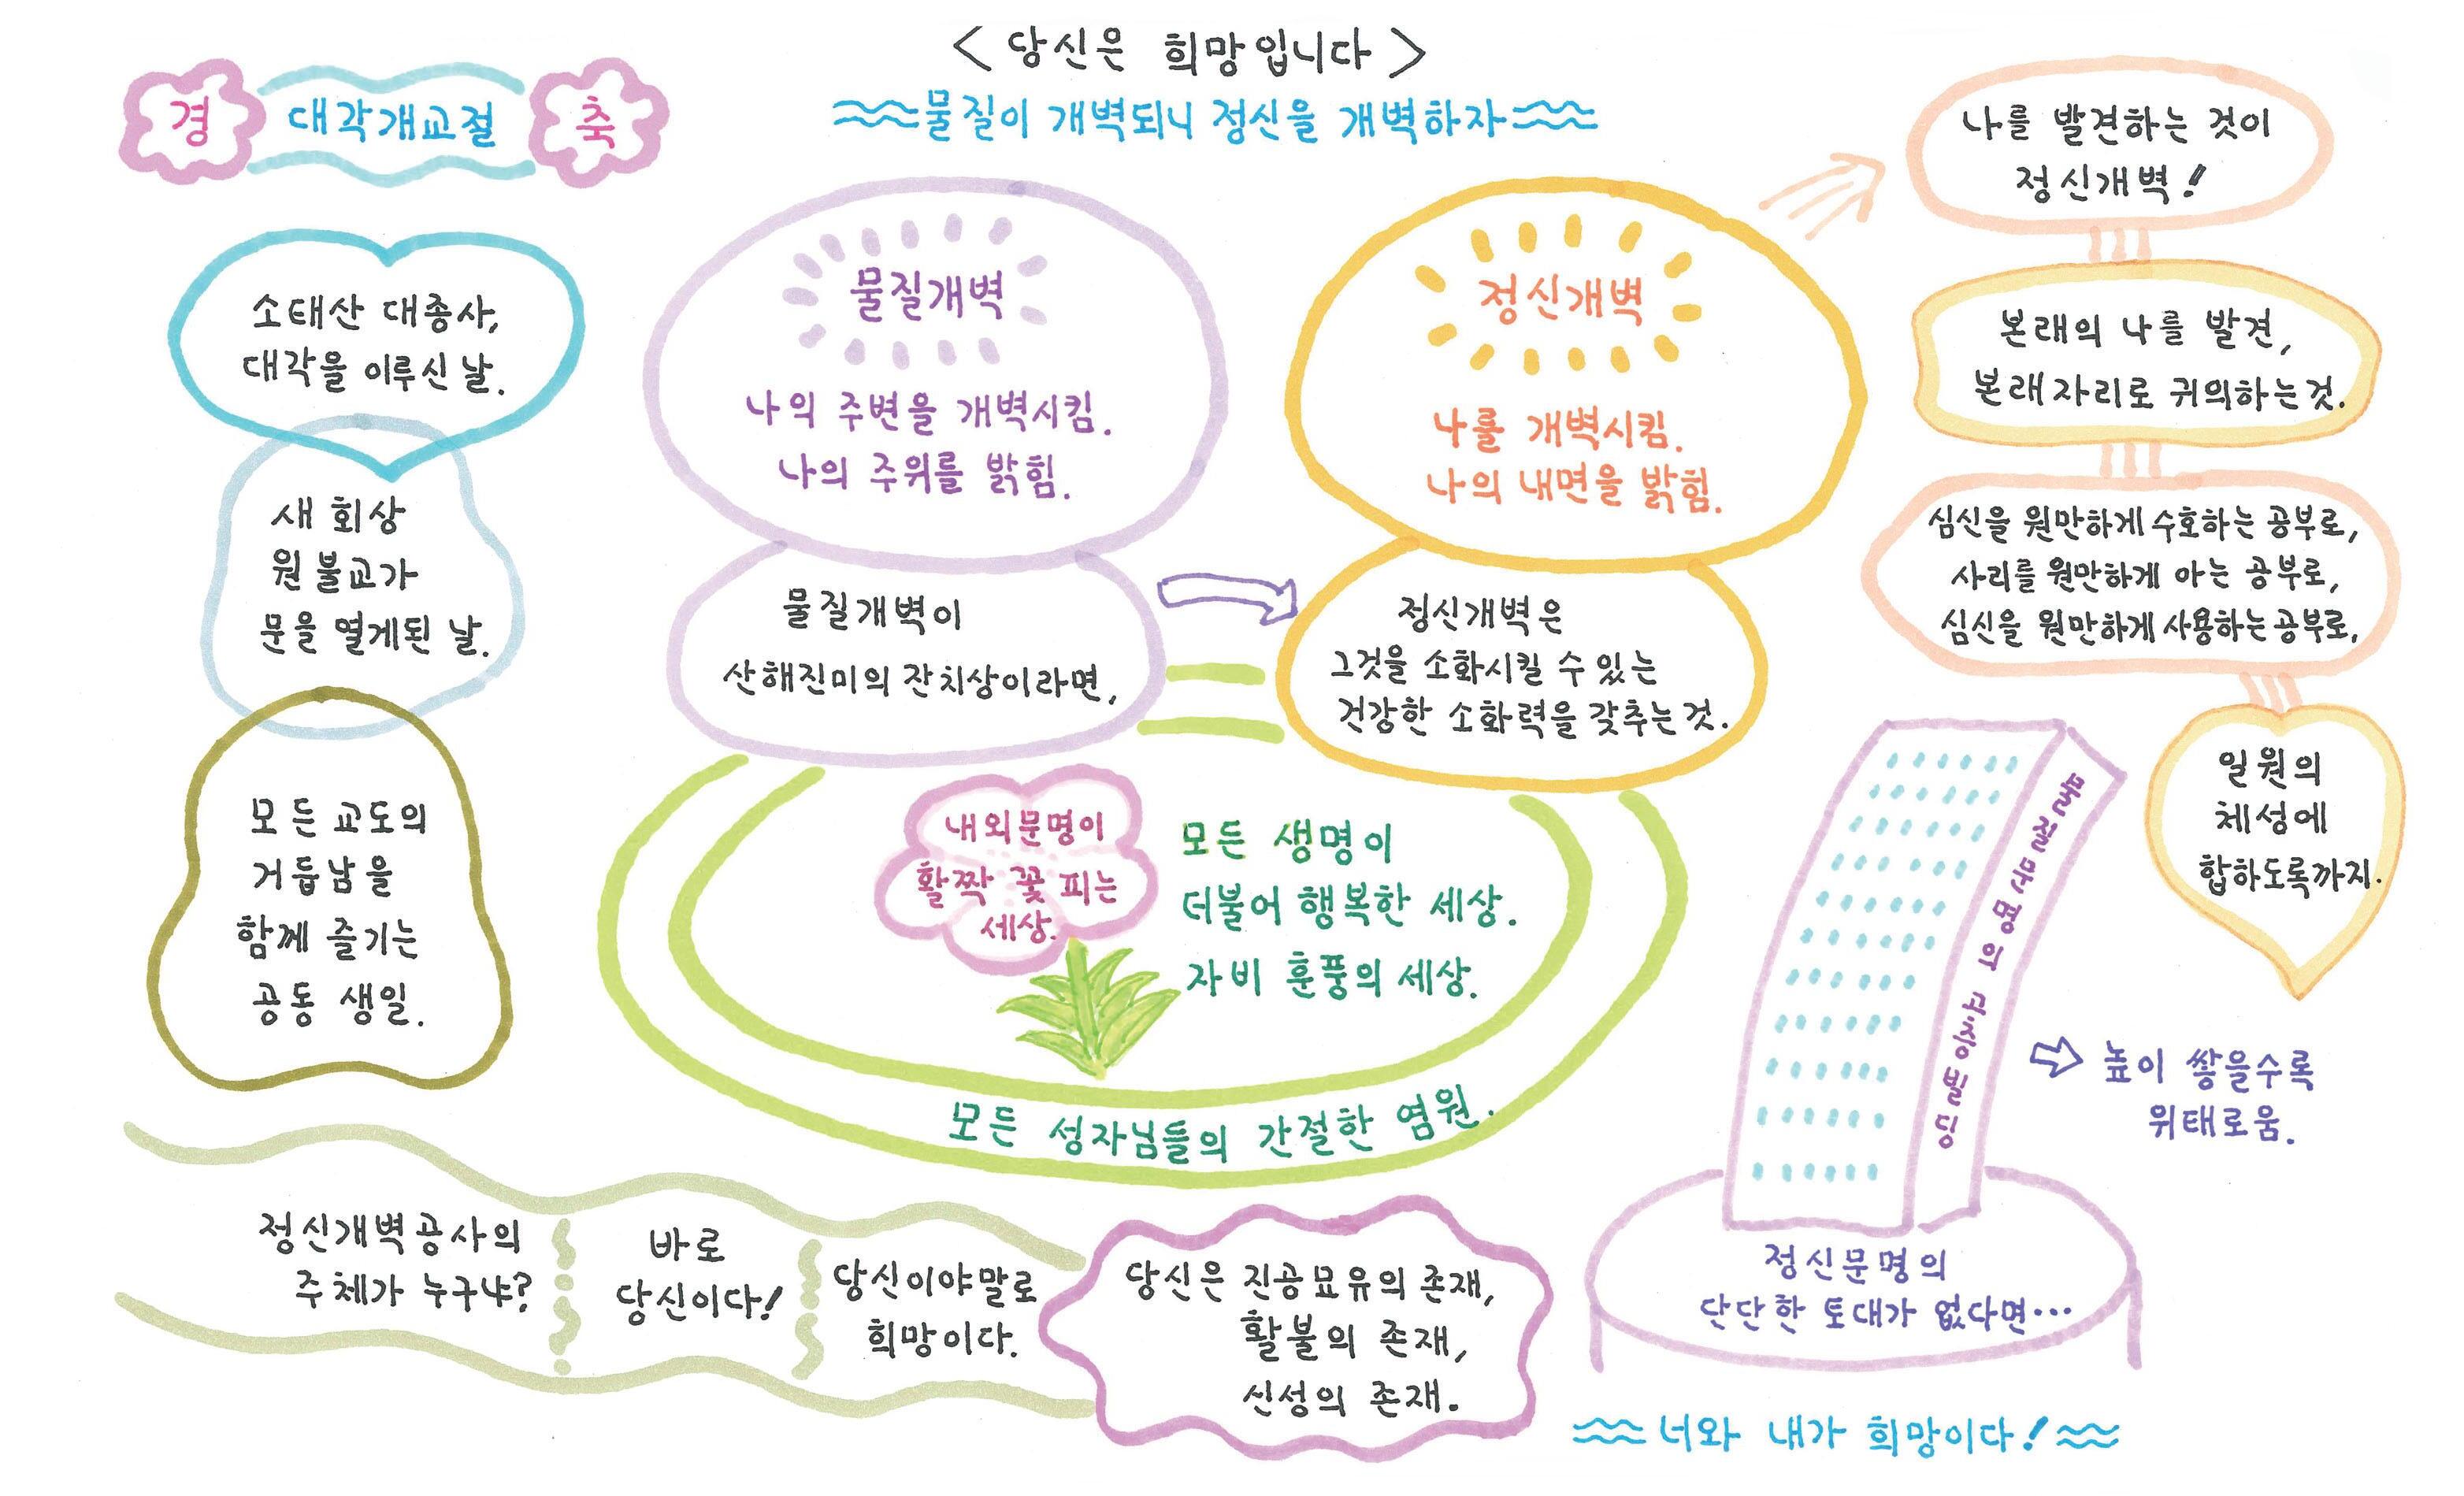 < 당신은 희망입니다 >
물질이 개벽되니 정신을 개벽하자
경 대각개교절 축
소태산 대종사,
대각을 이루신 날.
새 회상
원불교가
문을 열게된 날.
모든 교도의
거듭남을
함께 즐기는
공동 생일.
물질개벽
나의 주변을 개벽시킴.
나의 주위를 밝힘.
물질개벽이
산해진미의 잔치상이라면,
정신개벽
나를 개벽시킴.
나의 내면을 밝힘.
정신개벽은
그것을 소화시킬 수 있는
건강한 소화력을 갖추는 것.
내외문명이
활짝 꽃 피는
세상.
모든 생명이
더불어 행복한 세상.
자비 훈풍의 세상.
모든 성자님들의 간절한 염원.
나를 발견하는 것이
정신개벽!
본래의 나를 발견,
본래자리로 귀의하는 것.
심신을 원만하게 수호하는 공부로,
사리를 원만하게 아는 공부로,
심신을 원만하게 사용하는 공부로,
일원의
체성에
합하도록까지.
물질문명의 고층빌딩
높이 쌓을수록
위태로움.
정신문명의
단단한 토대가 없다면…
정신개벽공사의
주체가 누구냐?
바로
당신이다!
당신이야말로
희망이다.
당신은 진공묘유의 존재,
활불의 존재,
신성의 존재.
너와 내가 희망이다!